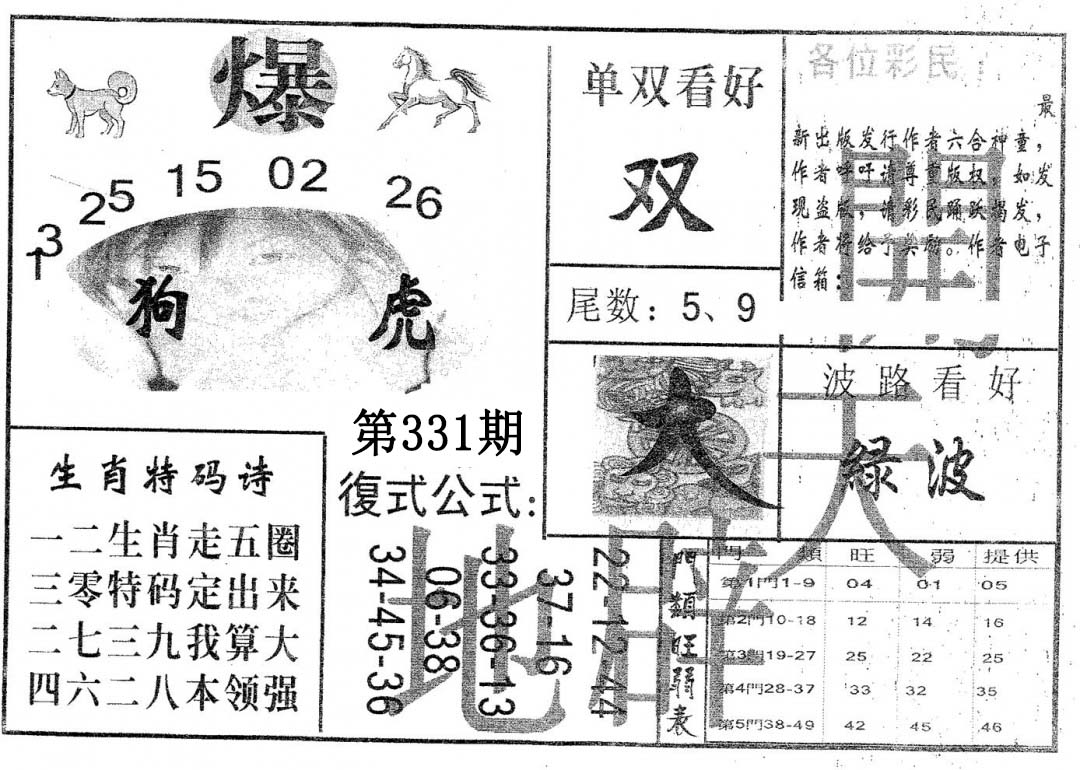 爆
25 15 02 26
13
狗 虎
单双看好
双
尾数：5、9
各位彩民
最
新出版发行作者六合神童，
作者呼吁请尊重版权，如发
现盗版，请彩民踊跃揭发，
作者将给予奖励。作者电子
信箱：
開
天
地
大
波路看好
緑波
第331期
復式公式:
34-45-36
06-38
33-36-13
37-16
22-12-44
生肖特码诗
一二生肖走五圈
三零特码定出来
二七三九我算大
四六二八本领强
門類旺弱表
門 類 旺 弱 提供
第1門1-9 04 01 05
第2門10-18 12 14 16
第3門19-27 25 22 25
第4門28-37 33 32 35
第5門38-49 42 45 46